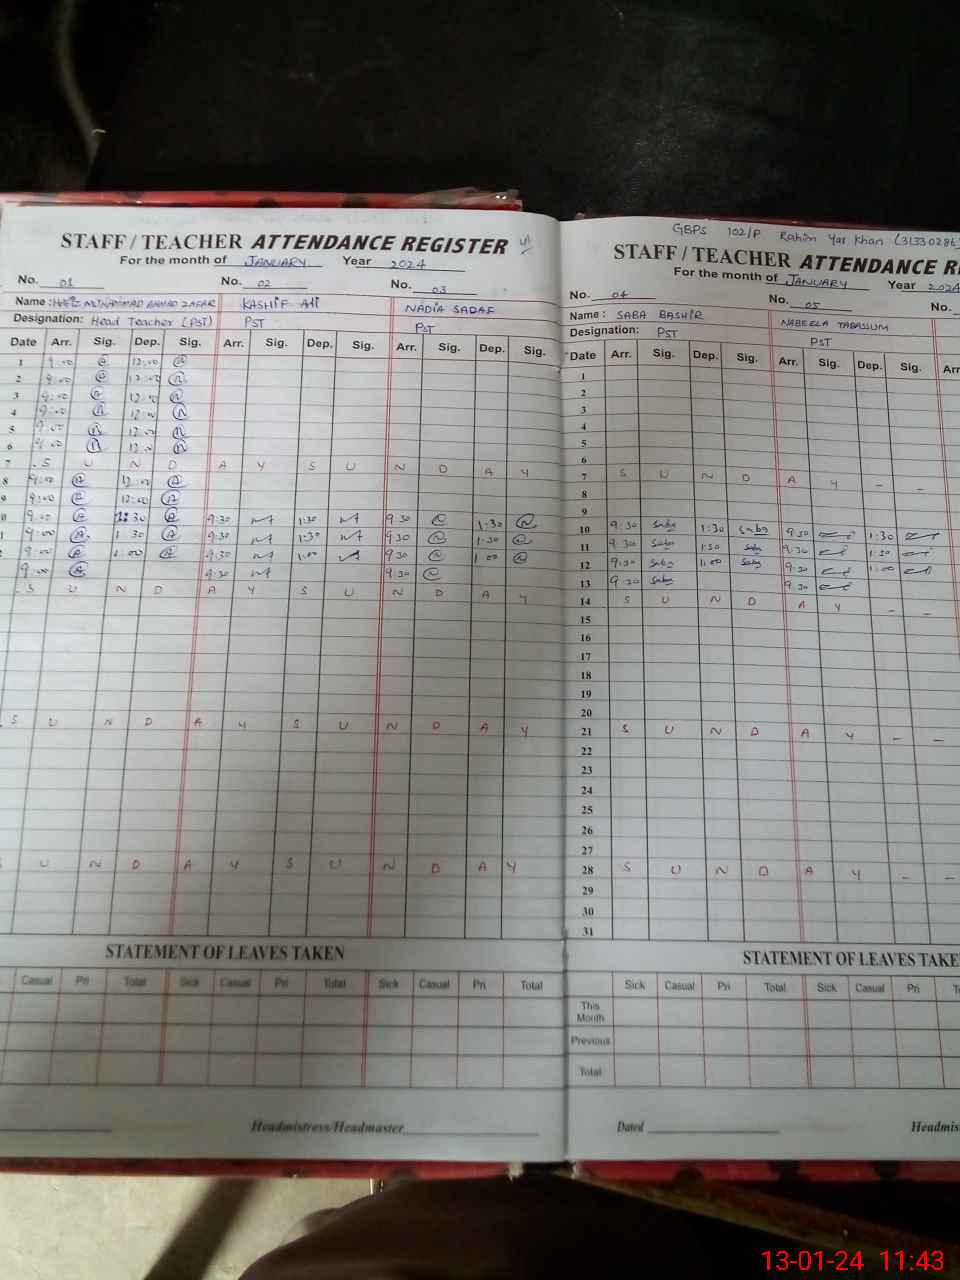 GBPS 102/P Rahim Yar Khan (31330286)
STAFF / TEACHER ATTENDANCE REGISTER
For the month of JANUARY Year 2024
No. 01 No. 02 No. 03
Name: HAFIZ MUHAMMAD AHMAD ZAFAR KASHIF Ali NADIA SADAF
Designation: Head Teacher (PST) PST PST
Date Arr. Sig. Dep. Sig. Arr. Sig. Dep. Sig. Arr. Sig. Dep. Sig.
1 9:00 12:00
2 9:00 12:00
3 9:00 12:00
4 9:00 12:00
5 9:00 12:00
6 9:00 12:00
7 S U N D A Y S U N D A Y
8 9:00 12:00
9 9:00 12:00
0 9:00 30 9:30 1:30 9:30 1:30
1 9:00 1:30 9:30 1:30 9:30 1:30
9:00 1:00 9:30 1:00 9:30 1:00
9:00 9:30 9:30
S U N D A Y S U N D A Y
S U N D A Y S U N D A Y
S U N D A Y S U N D A Y
STATEMENT OF LEAVES TAKEN
Casual Pri Total Sick Casual Pri Total Sick Casual Pri Total
Headmistress/Headmaster
STAFF / TEACHER ATTENDANCE RE
For the month of JANUARY Year 2024
No. 04 No. 05 No.
Name: SABA BASHIR NABEELA TABASSUM
Designation: PST PST
Date Arr. Sig. Dep. Sig. Arr. Sig. Dep. Sig. Arr
1
2
3
4
5
6
7 S U N D A Y - -
8
9
10 9:30 Saba 1:30 Saba 9:30 1:30
11 9:30 Saba 1:30 Saba 9:30 1:30
12 9:30 Saba 1:00 Saba 9:30 1:00
13 9:30 Saba 9:30
14 S U N D A Y - -
15
16
17
18
19
20
21 S U N D A Y - -
22
23
24
25
26
27
28 S U N D A Y - -
29
30
31
STATEMENT OF LEAVES TAKE
Sick Casual Pri Total Sick Casual Pri T
This Month
Previous
Total
Dated Headmis
13-01-24 11:43